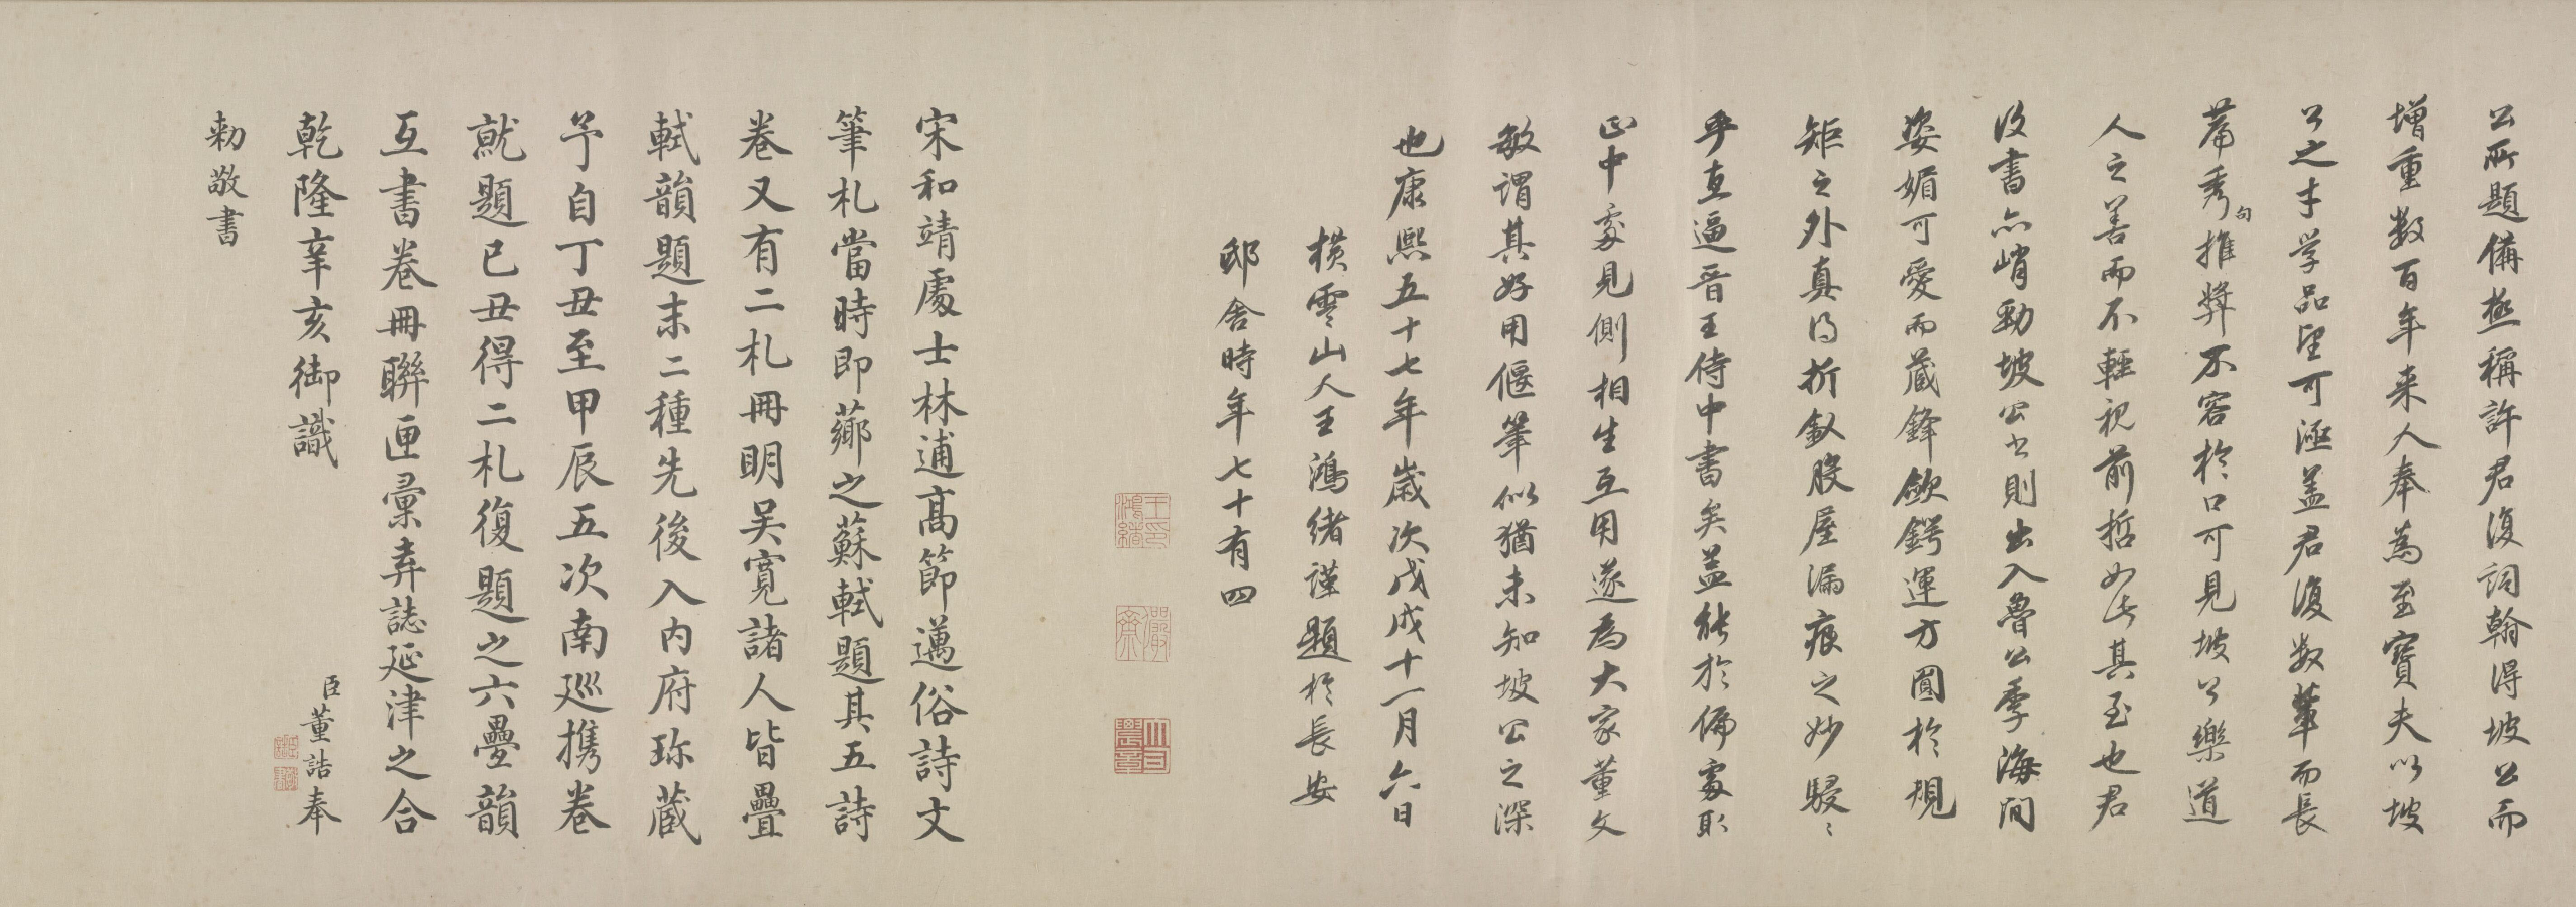 公所題備極稱許君復詞翰得坡公而
增重数百年来人奉為至寶夫以坡
公之才学品望可涵盖君復数輩而長
篇秀句推奨不容於口可見坡公樂道
人之善而不輕視前哲如此其至也君
復書亦峭勁坡公書則出入魯公季海間
姿媚可愛而蔵鋒歛鍔運方圓於規
矩之外真得折釵股屋漏痕之妙駸〻
乎直逼晋王侍中書矣盖能於偏處取
正中處見側相生互用遂為大家董文
敏謂其好用偃筆似猶未知坡公之深
也康熙五十七年歳次戊戌十一月六日
横雲山人王鴻緒謹題於長安
邸舍時年七十有四
王印鴻緒
儼齋
宋和靖處士林逋髙節邁俗詩文
筆札當時即薌之蘇軾題其五詩
卷又有二札冊明吳寛諸人皆疊
軾韻題末二種先後入内府珎蔵
予自丁丑至甲辰五次南巡携卷
就題已丑得二札復題之六疊韻
互書卷冊聯匣彙弆誌延津之合
乾隆辛亥御識
臣董誥奉
勅敬書